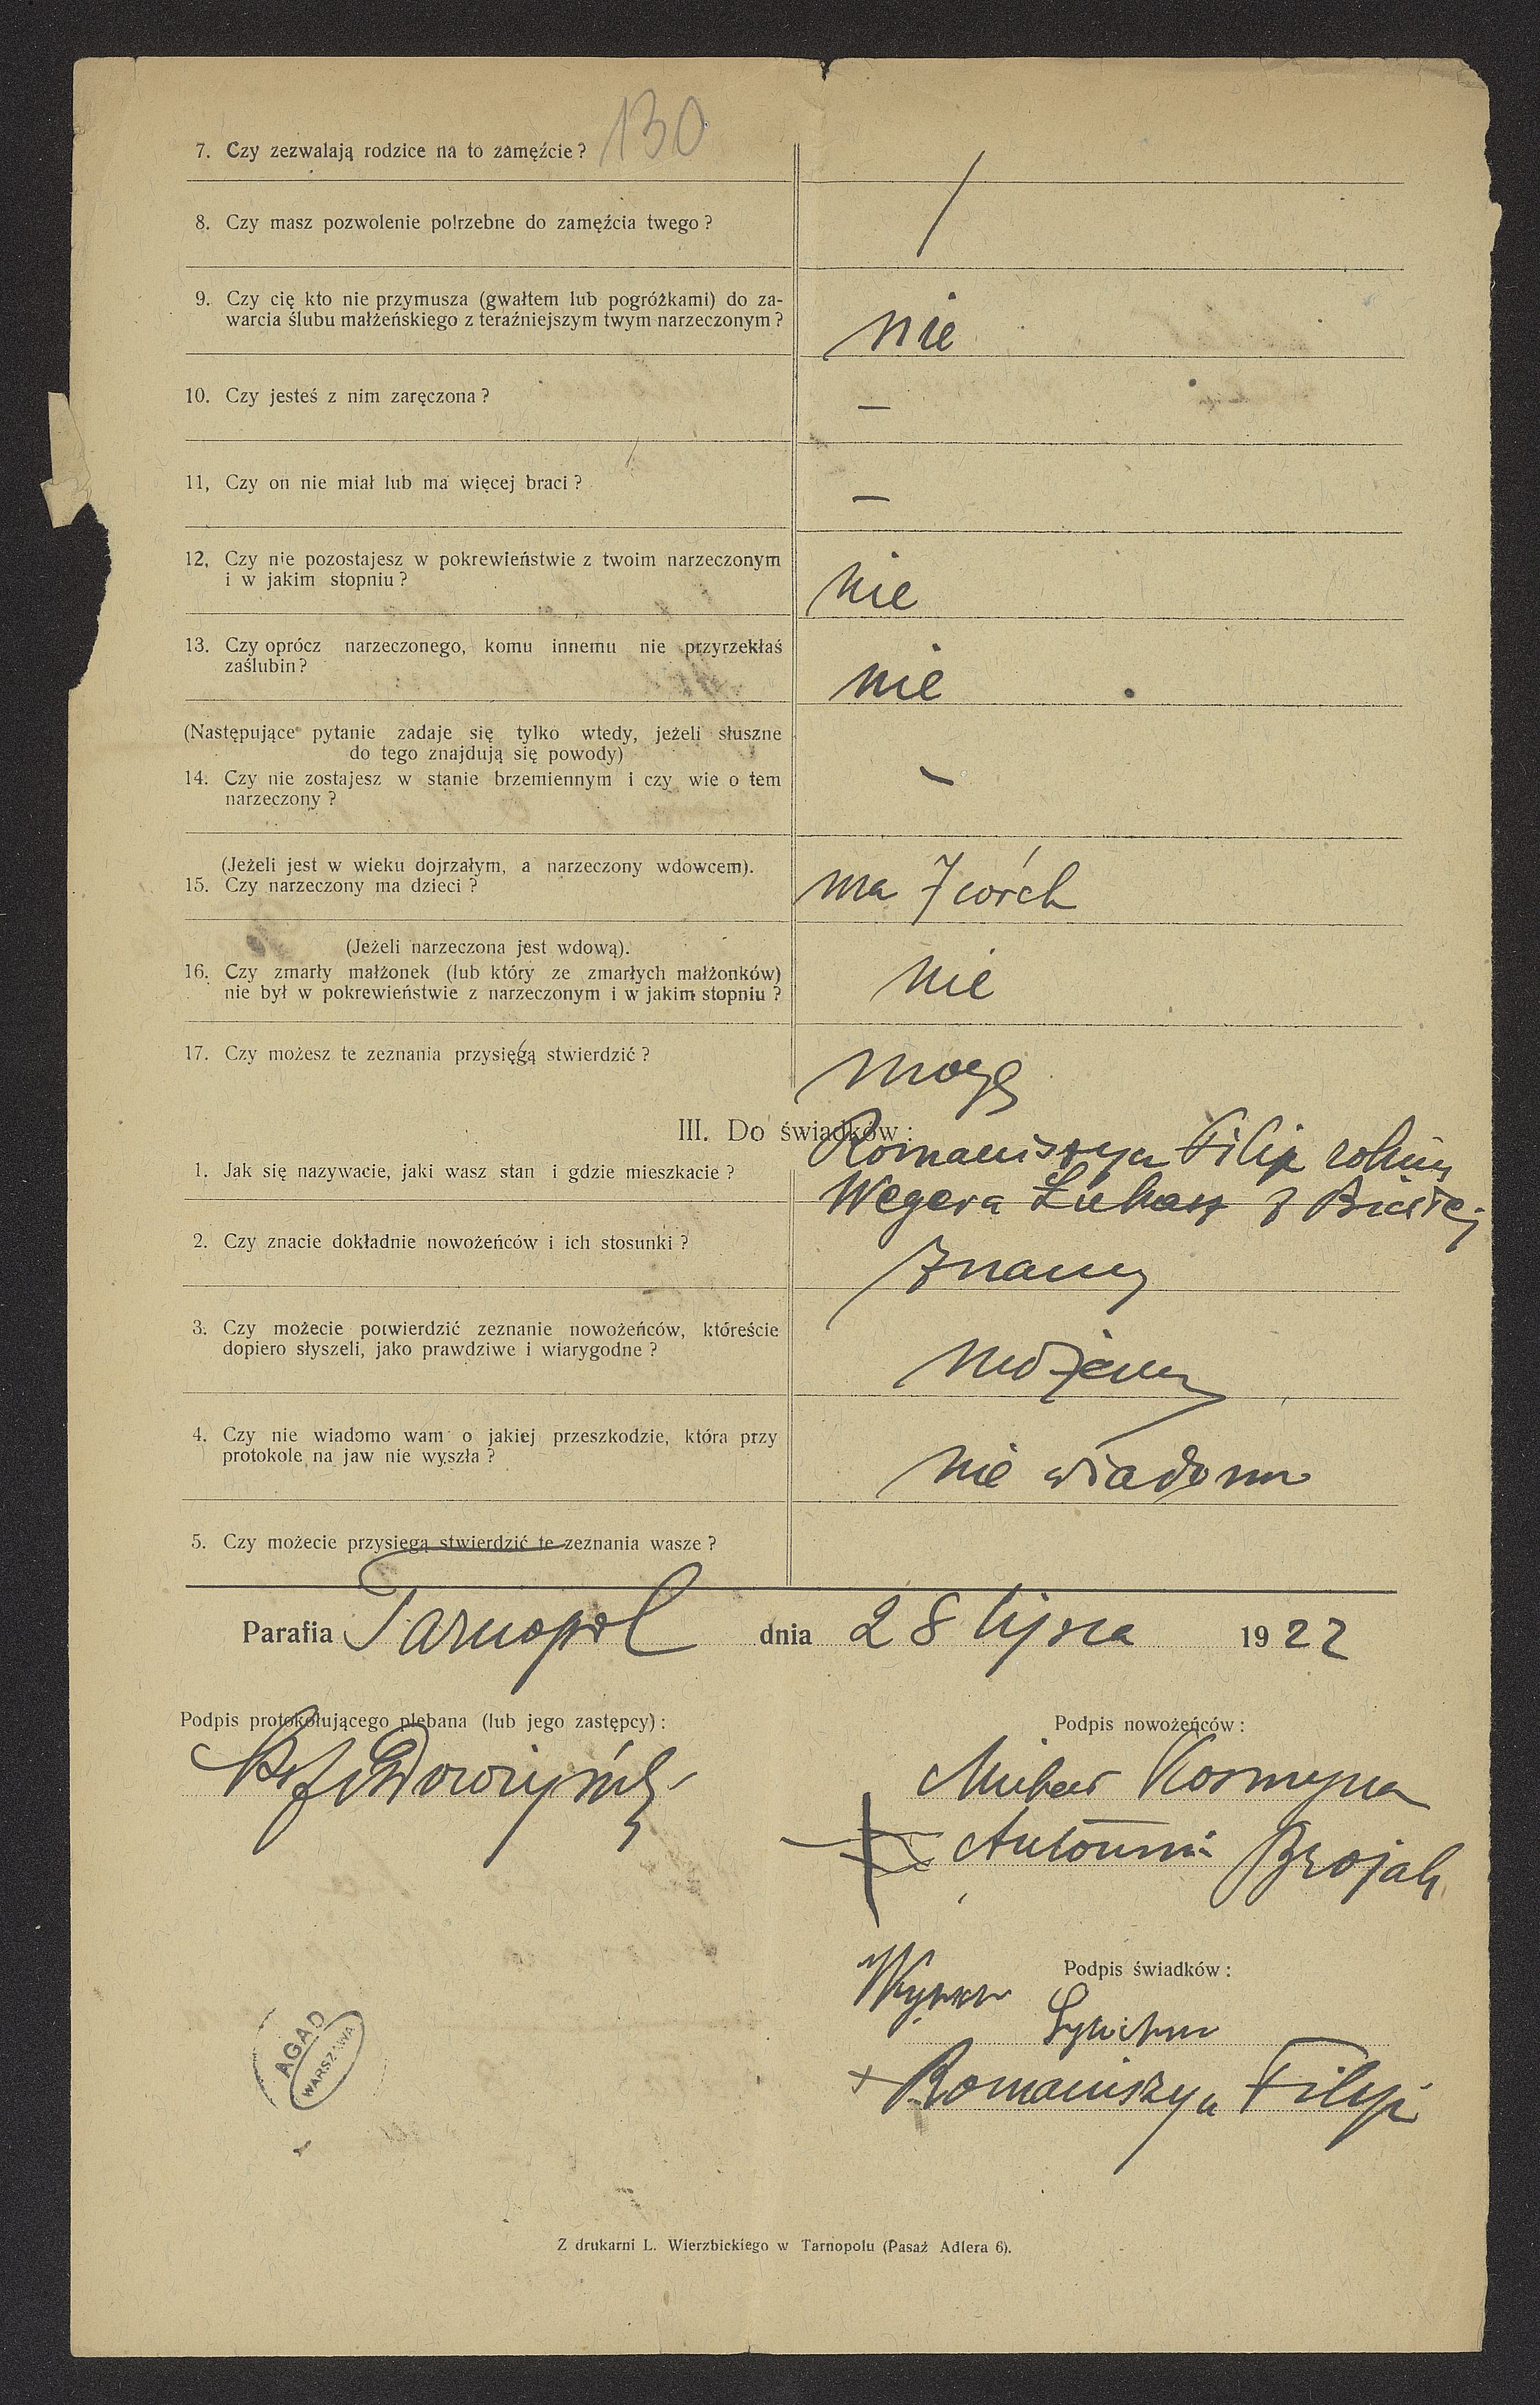 130
7. Czy zezwalają rodzice na to zamęźcie?
8. Czy masz pozwolenie potrzebne do zamęźcia twego? /
9. Czy cię kto nie przymusza (gwałtem lub pogróżkami) do za-
warcia ślubu małżeńskiego z teraźniejszym twym narzeczonym? nie
10. Czy jesteś z nim zaręczona? —
11, Czy on nie miał lub ma więcej braci? —
12, Czy nie pozostajesz w pokrewieństwie z twoim narzeczonym
i w jakim stopniu? nie
13. Czy oprócz narzeczonego, komu innemu nie przyrzekłaś
zaślubin? nie
(Następujące pytanie zadaje się tylko wtedy, jeżeli słuszne
do tego znajdują się powody)
14. Czy nie zostajesz w stanie brzemiennym i czy wie o tem
narzeczony? —
(Jeżeli jest w wieku dojrzałym, a narzeczony wdowcem).
15. Czy narzeczony ma dzieci? ma 7 córek
(Jeżeli narzeczona jest wdową).
16. Czy zmarły małżonek (lub który ze zmarłych małżonków)
nie był w pokrewieństwie z narzeczonym i w jakim stopniu? nie
17. Czy możesz te zeznania przysięgą stwierdzić? mogę
III. Do świadków:
1. Jak się nazywacie, jaki wasz stan i gdzie mieszkacie? Romaniszyn Filip rolnicy
Wegera Łukasz z Białej
2. Czy znacie dokładnie nowożeńców i ich stosunki? Znamy
3. Czy możecie potwierdzić zeznanie nowożeńców, któreście
dopiero słyszeli, jako prawdziwe i wiarygodne? możemy
4. Czy nie wiadomo wam o jakiej przeszkodzie, która przy
protokole na jaw nie wyszła? nie wiadomo
5. Czy możecie przysięgą stwierdzić te zeznania wasze?
Parafia Tarnopol dnia 28 lipca 1922
Podpis protokołującego plebana (lub jego zastępcy):
Podpis nowożeńców:
Kosmyna
Antonina Brojak
Podpis świadków:
+ Romaniszyn Filip
AGAD
WARSZAWA
Z drukarni L. Wierzbickiego w Tarnopolu (Pasaż Adlera 6).